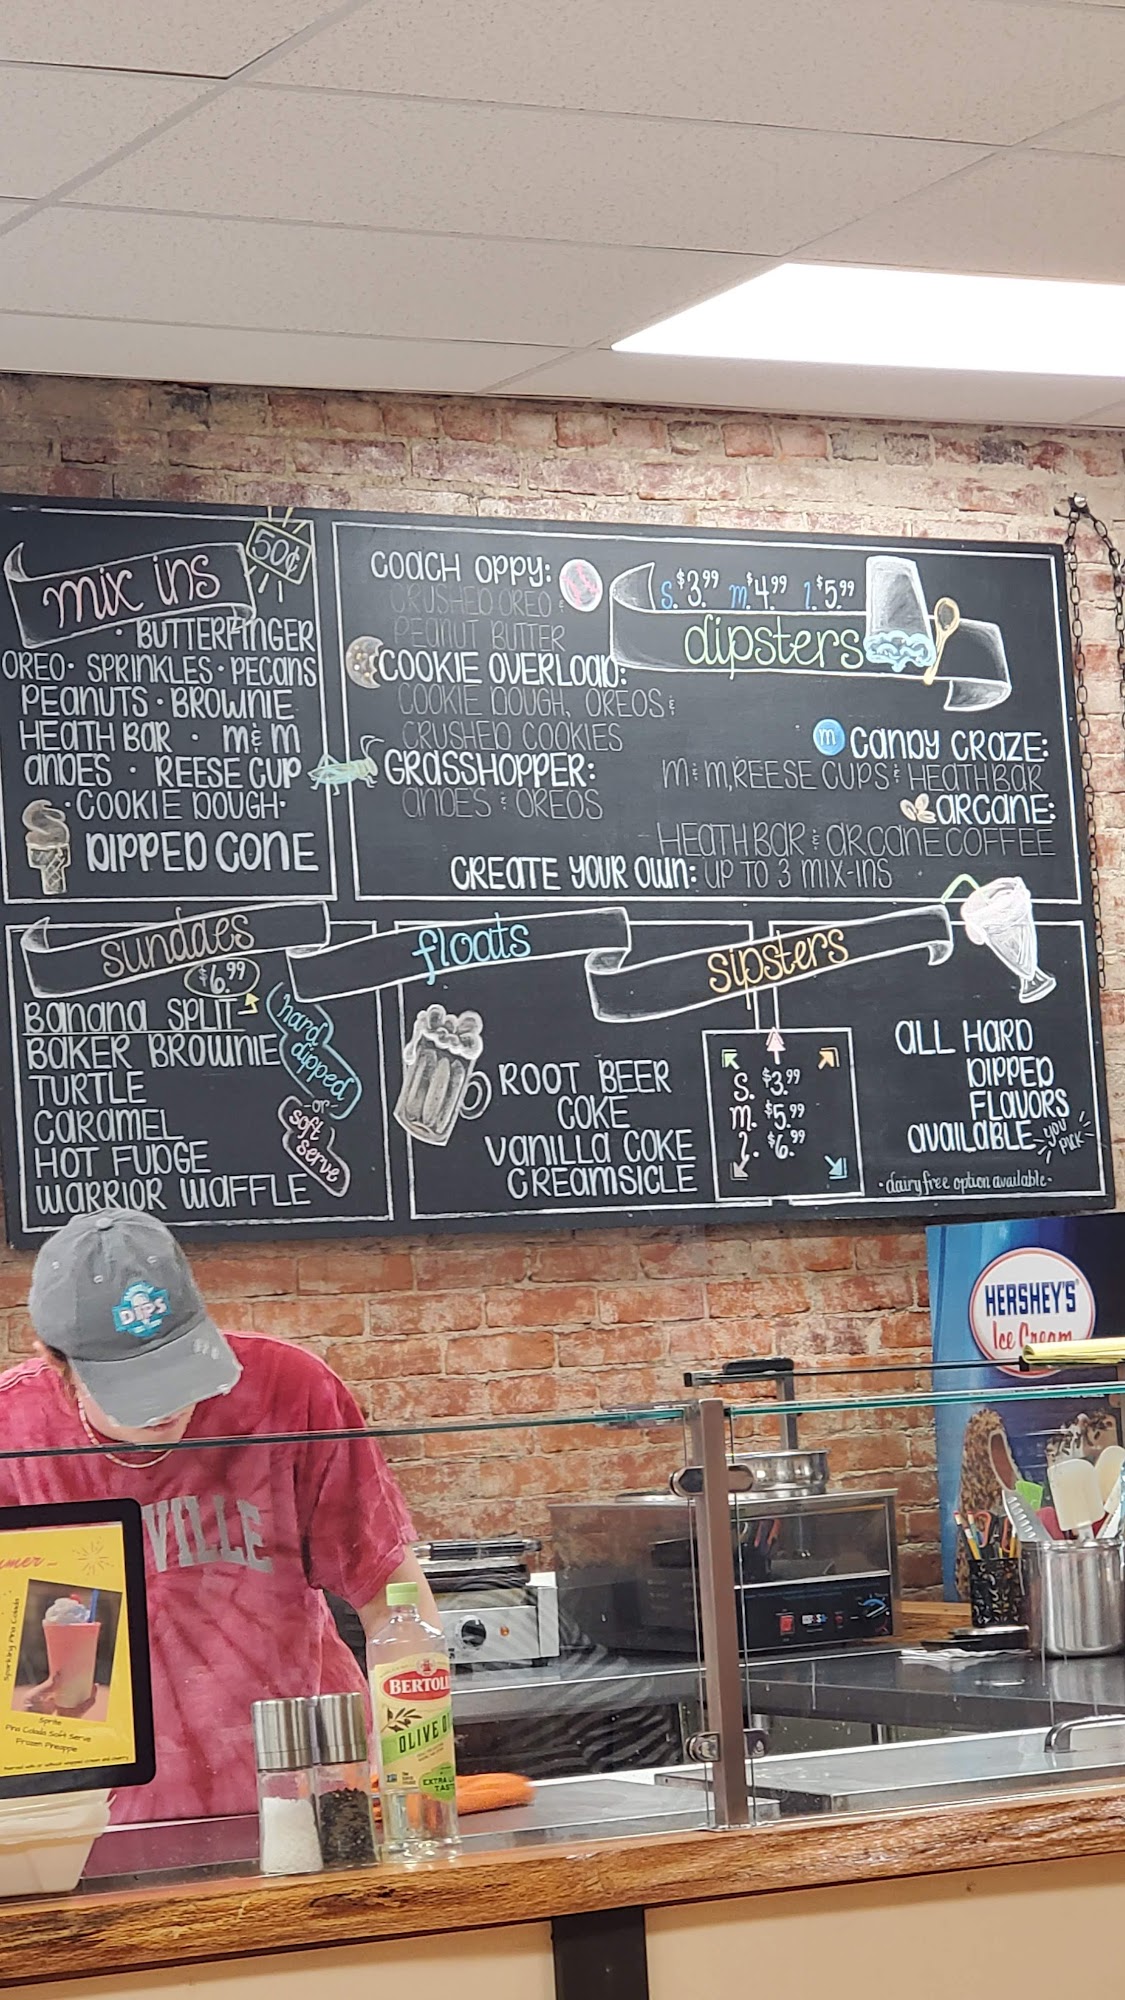 mix ins
50¢
• BUTTERFINGER
OREO • SPRINKLES • PECANS
PEANUTS • BROWNIE
HEATH BAR • M&M
ANDES • REESE CUP
• COOKIE DOUGH •
DIPPED CONE
COACH OPPY:
CRUSHED OREO &
PEANUT BUTTER
COOKIE OVERLOAD:
COOKIE DOUGH, OREOS &
CRUSHED COOKIES
GRASSHOPPER:
ANDES & OREOS
S. $3.99 M. $4.99 l. $5.99
dipsters
m CANDY CRAZE:
M&M, REESE CUPS & HEATH BAR
ARCANE:
HEATH BAR & ARCANE COFFEE
CREATE YOUR OWN: UP TO 3 MIX-INS
sundaes
$6.99
BANANA SPLIT
BAKER BROWNIE
TURTLE
CARAMEL
HOT FUDGE
WARRIOR WAFFLE
hard
dipped
-or-
soft
serve
floats
ROOT BEER
COKE
VANILLA COKE
CREAMSICLE
sipsters
S. $3.99
M. $5.99
l. $6.99
ALL HARD
DIPPED
FLAVORS
AVAILABLE
YOU
PICK
• dairy free option available •
HERSHEY'S
Ice Cream
DIPS
VILLE
BERTOLLI
OLIVE O
EXTRA
TAST
mmer
Sprite
Pina Colada Soft Serve
Frozen Pineapple